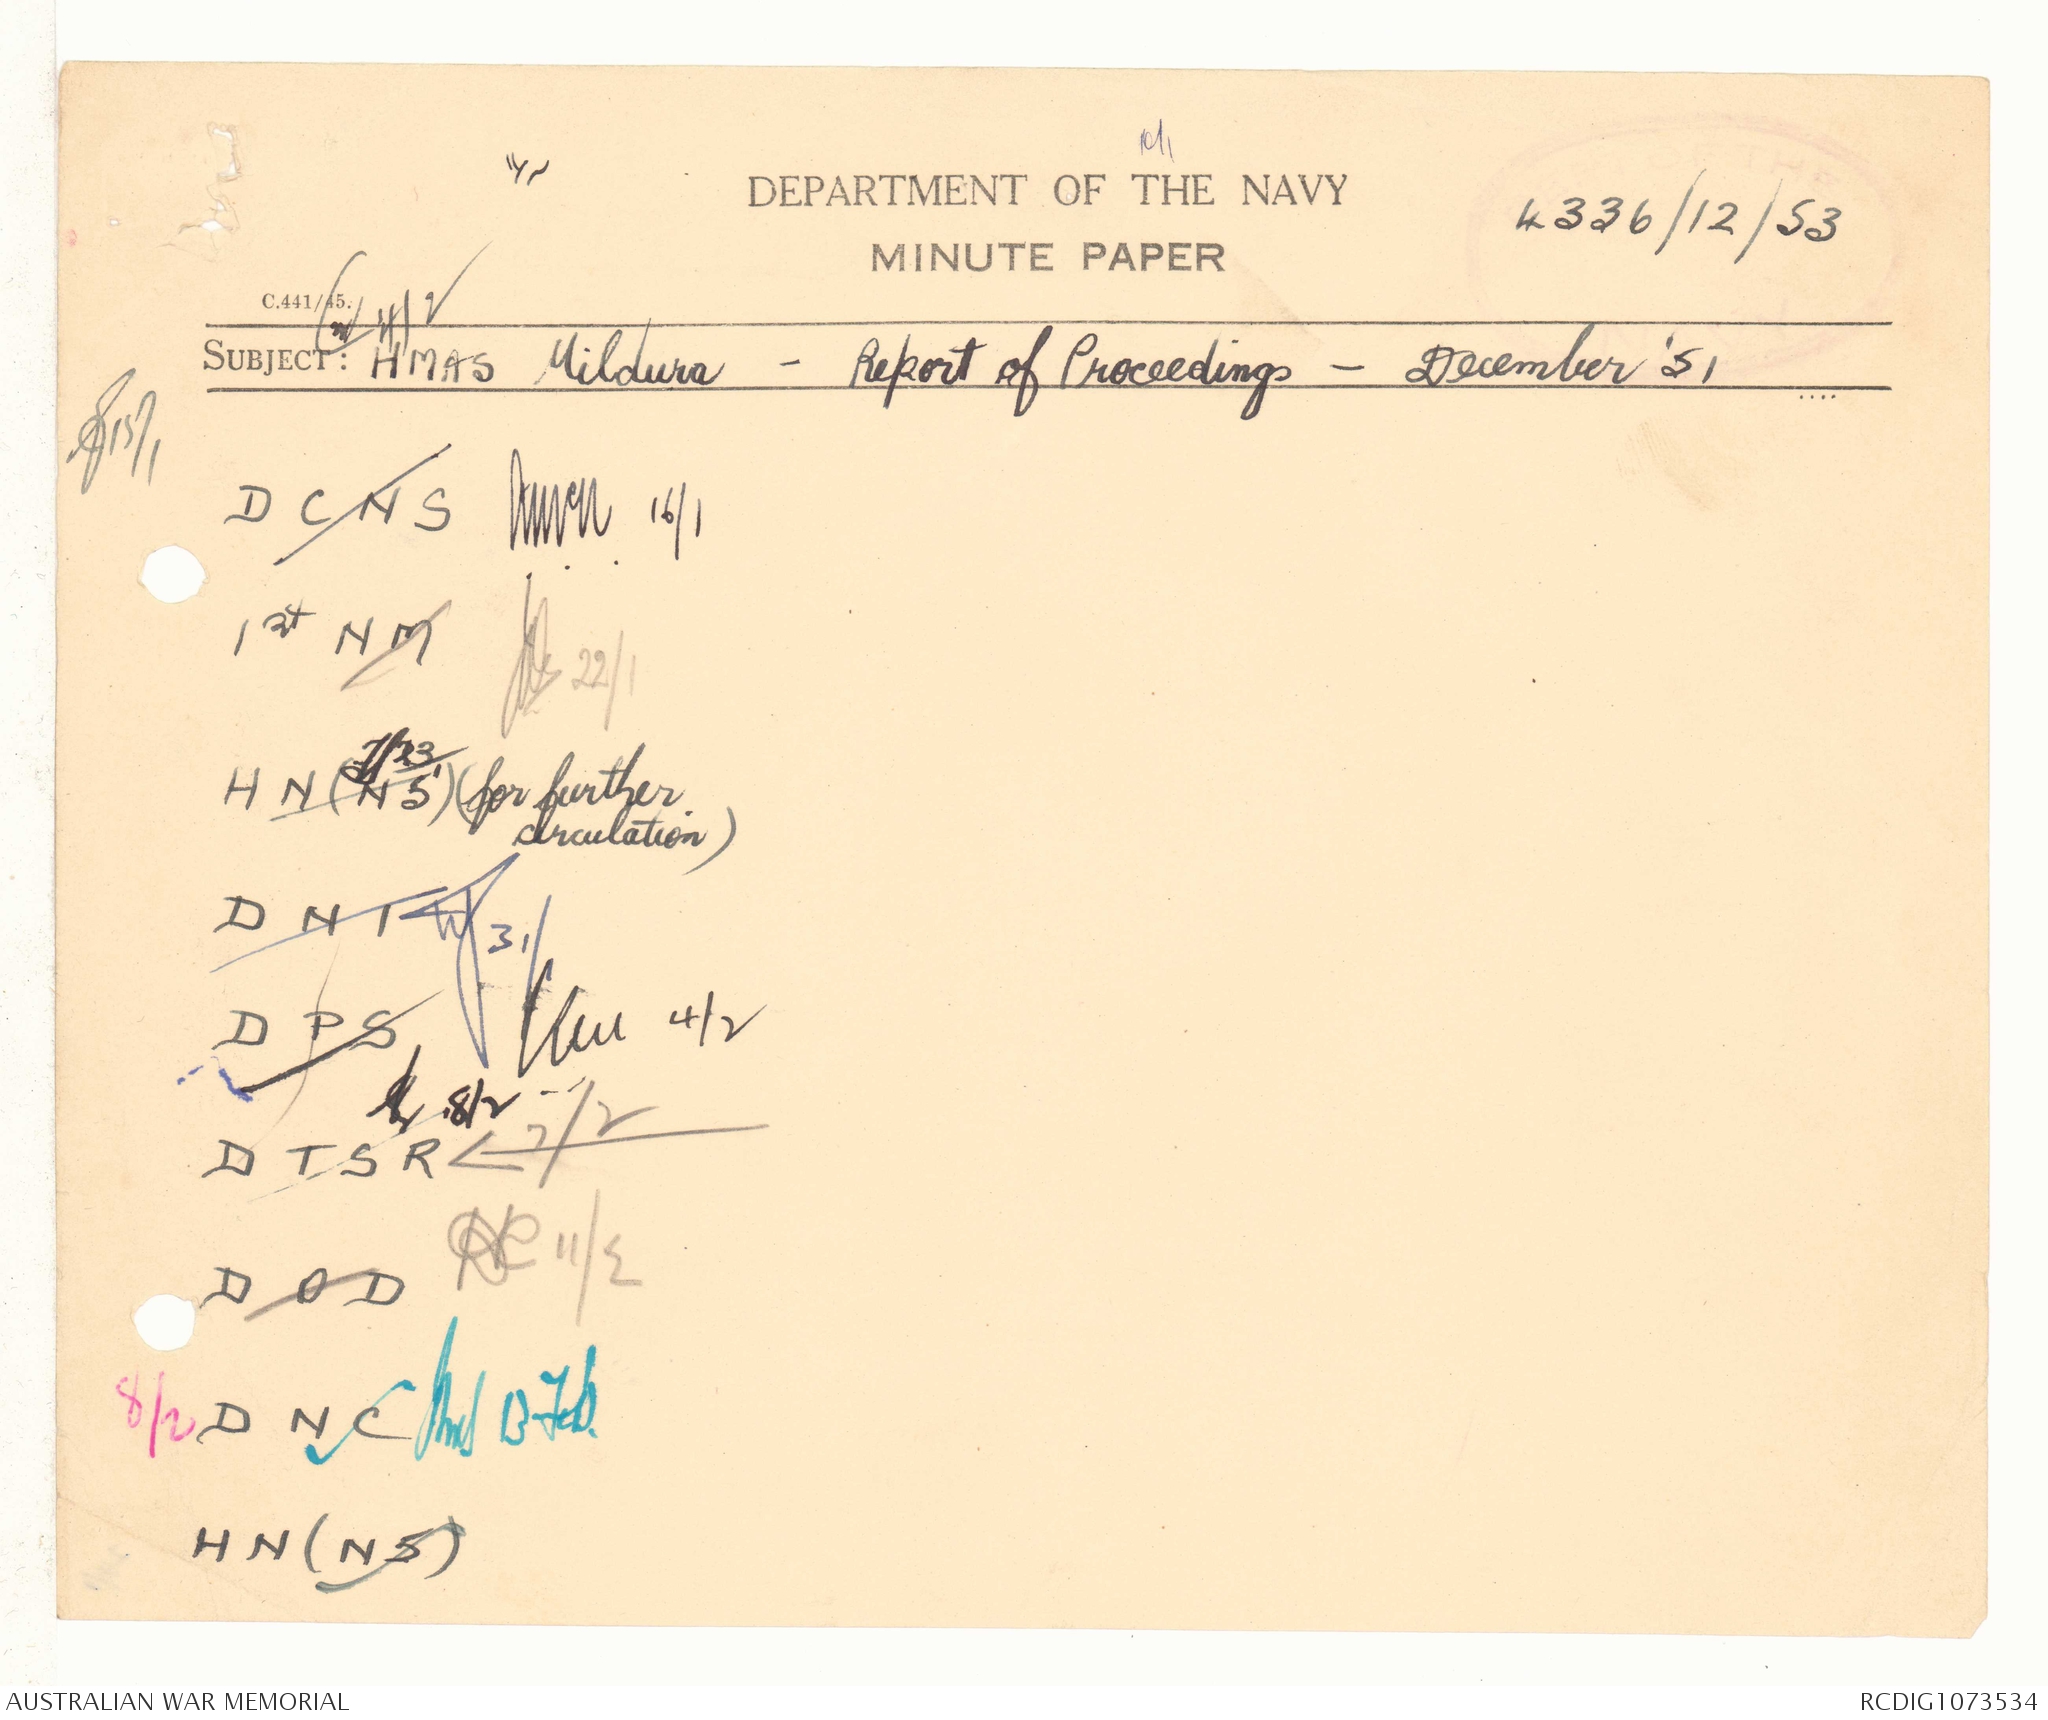 DEPARTMENT OF THE NAVY
4336/12/53
MINUTE PAPER
C.441/45.
SUBJECT: HMAS Mildura - Report of Proceedings - December '51
15/1
D C N S 16/1
1st N M 22/1
H N (N 5) (for further
circulation)
D N I 31/1
D P S 4/2
8/2 7/2
D T S R
D O D 11/2
8/2 D N C 13 Feb.
H N (N 5)
AUSTRALIAN WAR MEMORIAL
RCDIG1073534